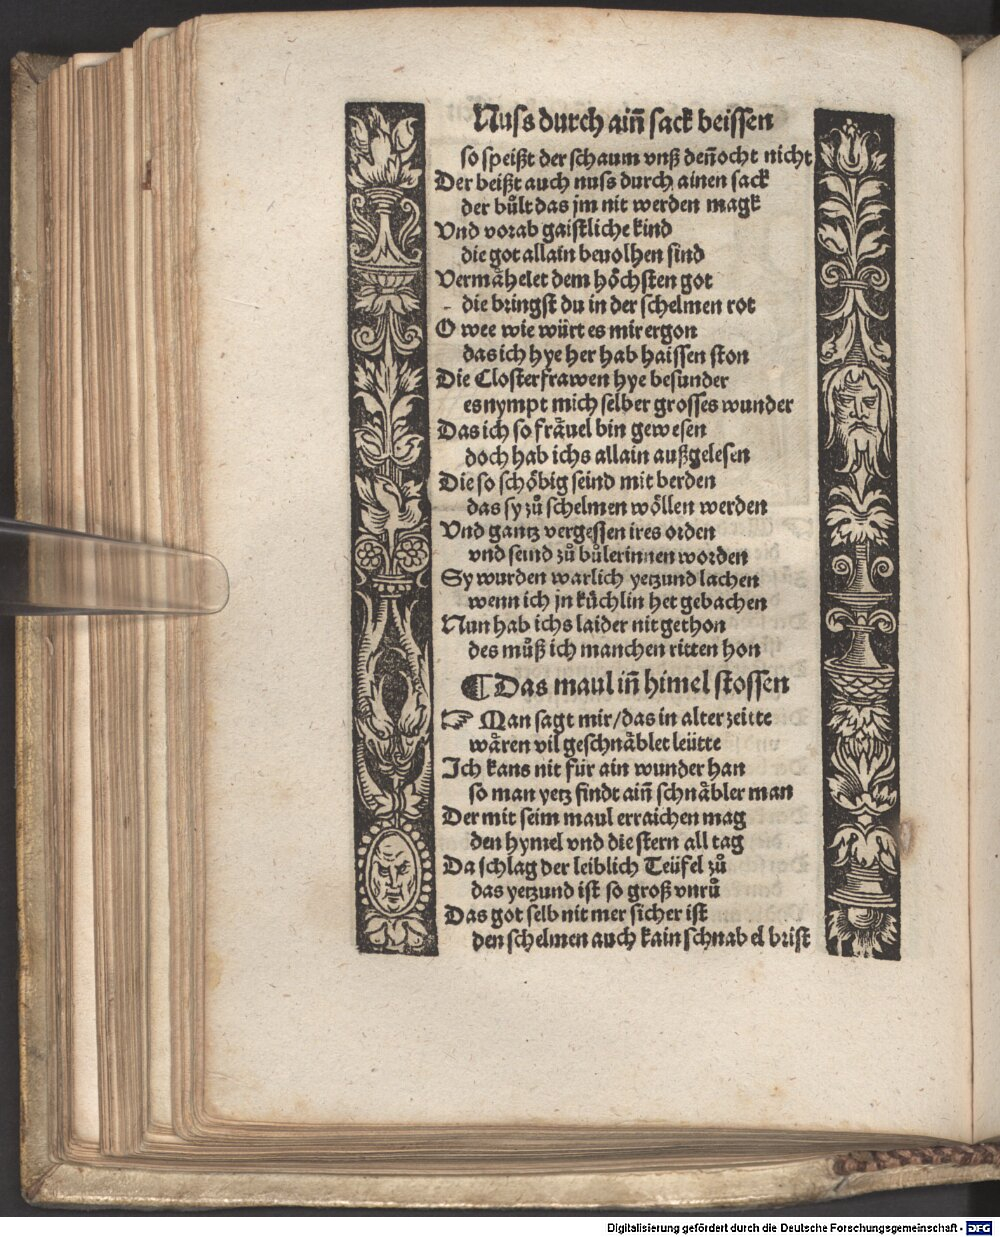 Nuſs durch aiñ ſack beiſſen
ſo ſpeißt der ſchaum vnß deñocht nicht
Der beißt auch nuſs durch ainen ſack
der bůlt das jm nit werden magk
Vnd vorab gaiſtliche kind
die got allain beuolhen ſind
Vermåhelet dem höchſten got
die bringſt du in der ſchelmen rot
O wee wie würt es mir ergon
das ich hye her hab haiſſen ſton
Die Cloſterfrawen hye beſunder
es nympt mich ſelber groſſes wunder
Das ich ſo fråuel bin geweſen
doch hab ichs allain außgeleſen
Die ſo ſchöbig ſeind mit berden
das ſy zů ſchelmen wöllen werden
Vnd gantz vergeſſen ires orden
vnd ſeind zů bůlerinnen worden
Sy wurden warlich yetzund lachen
wenn ich jn küchlin het gebachen
Nun hab ichs laider nit gethon
des můß ich manchen ritten hon
¶ Das maul iñ himel ſtoſſen
☞ Man ſagt mir/das in alter zeitte
wåren vil geſchnåblet leütte
Ich kans nit für ain wunder han
ſo man yetz findt aiñ ſchnåbler man
Der mit ſeim maul erraichen mag
den hymel vnd die ſtern all tag
Da ſchlag der leiblich Teüfel zů
das yetzund iſt ſo groß vnrů
Das got ſelb nit mer ſicher iſt
den ſchelmen auch kain ſchnabel briſt
Digitalisierung gefördert durch die Deutsche Forschungsgemeinschaft - DFG